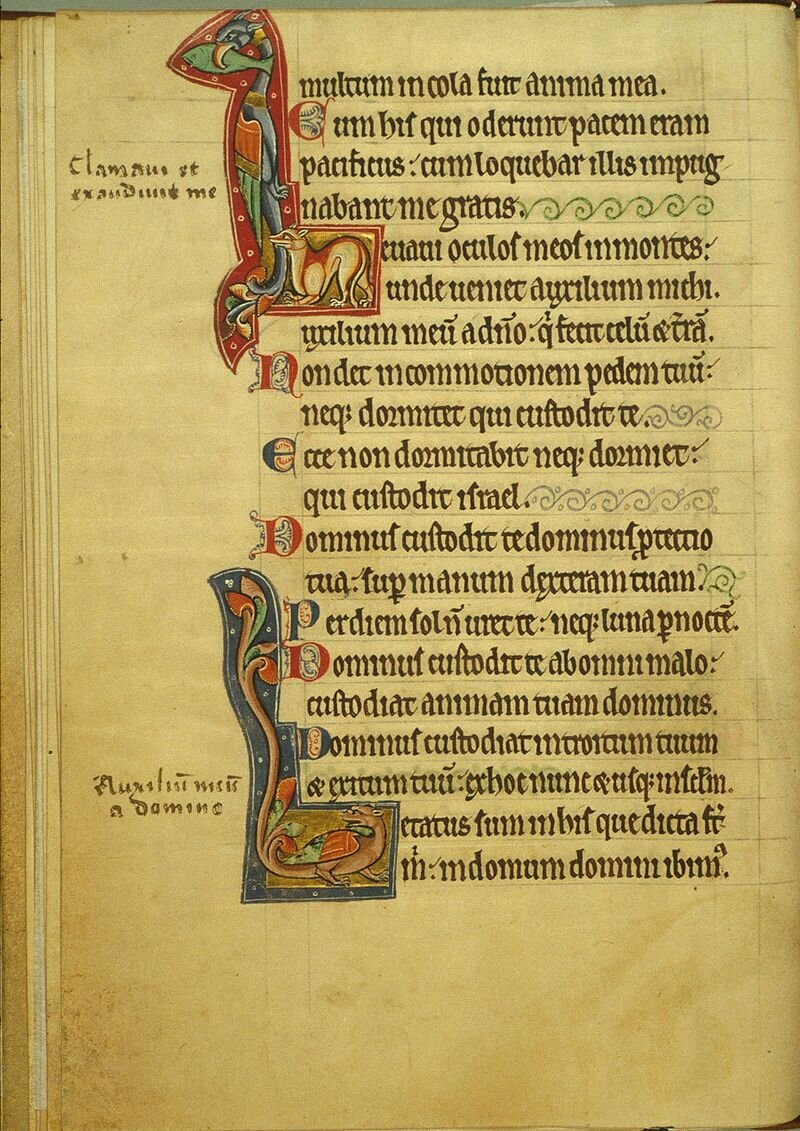 multum incola fuit anima mea.
Cum his qui oderunt pacem eram
pacificus: cum loquebar illis impug
nabant me gratis.
Clamaui et
exaudiuit me
Leuaui oculos meos in montes:
unde ueniet auxilium michi.
uxilium meū a dño: q̇ fecit celū & t̄rā.
Non det in commotionem pedem tuū:
neq; dormitet qui custodit te.
Ecce non dormitabit neq; dormiet:
qui custodit israel.
Dominus custodit te dominus ꝓtectio
tua: sup̱ manum dexteram tuam.
Per diem sol ñ uret te: neq; luna ꝑ noctē.
Dominus custodit te ab omni malo:
custodiat animam tuam dominus.
Dominus custodiat introitum tuum
& exitum tuū: ex hoc nunc & usq; in sc̄lm.
Auxiliū meū
a domino
Letatus sum in his que dicta st̄
m̊: in domum domini ibim᾿.